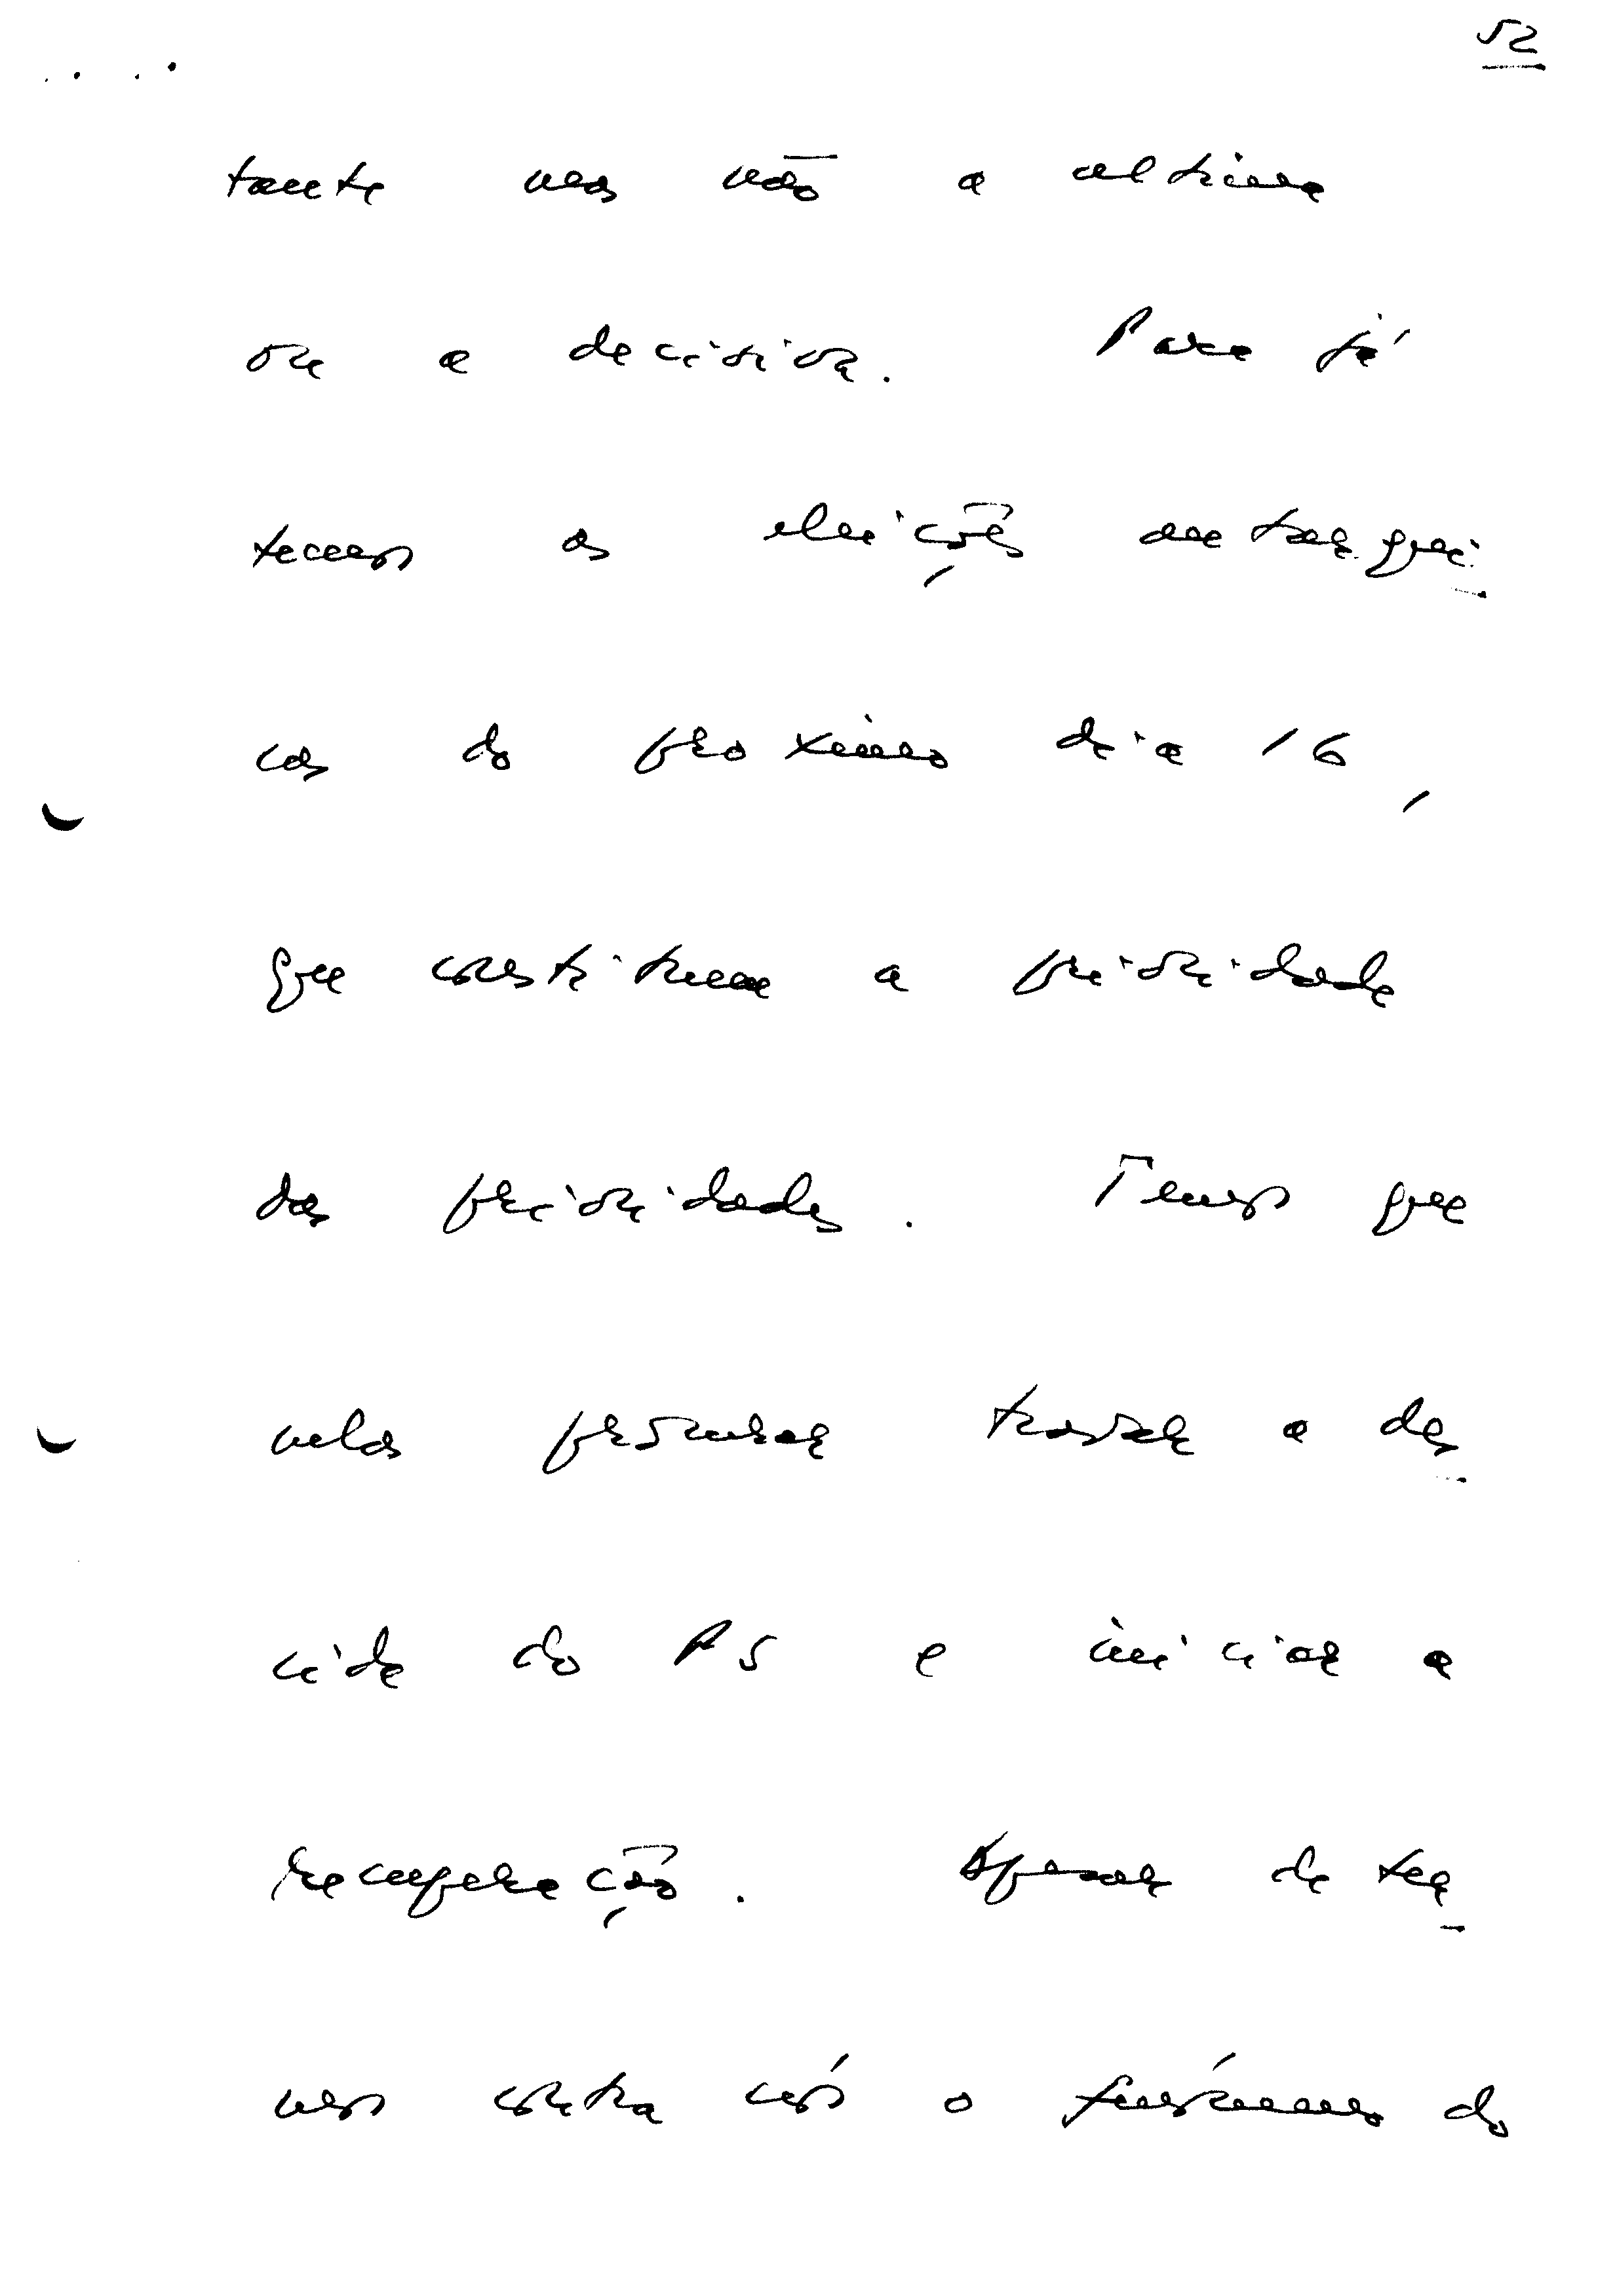 52
tante mas não a ultima
ou a decisiva. Para já
temos as eleições autárqui-
cas do proximo dia 16,
que constituem a prioridade
das prioridades. Temos que
nelas procurar travar a des-
cida do PS e iniciar a
recuperação. Apesar de ter-
mos contra nós o fenómeno do